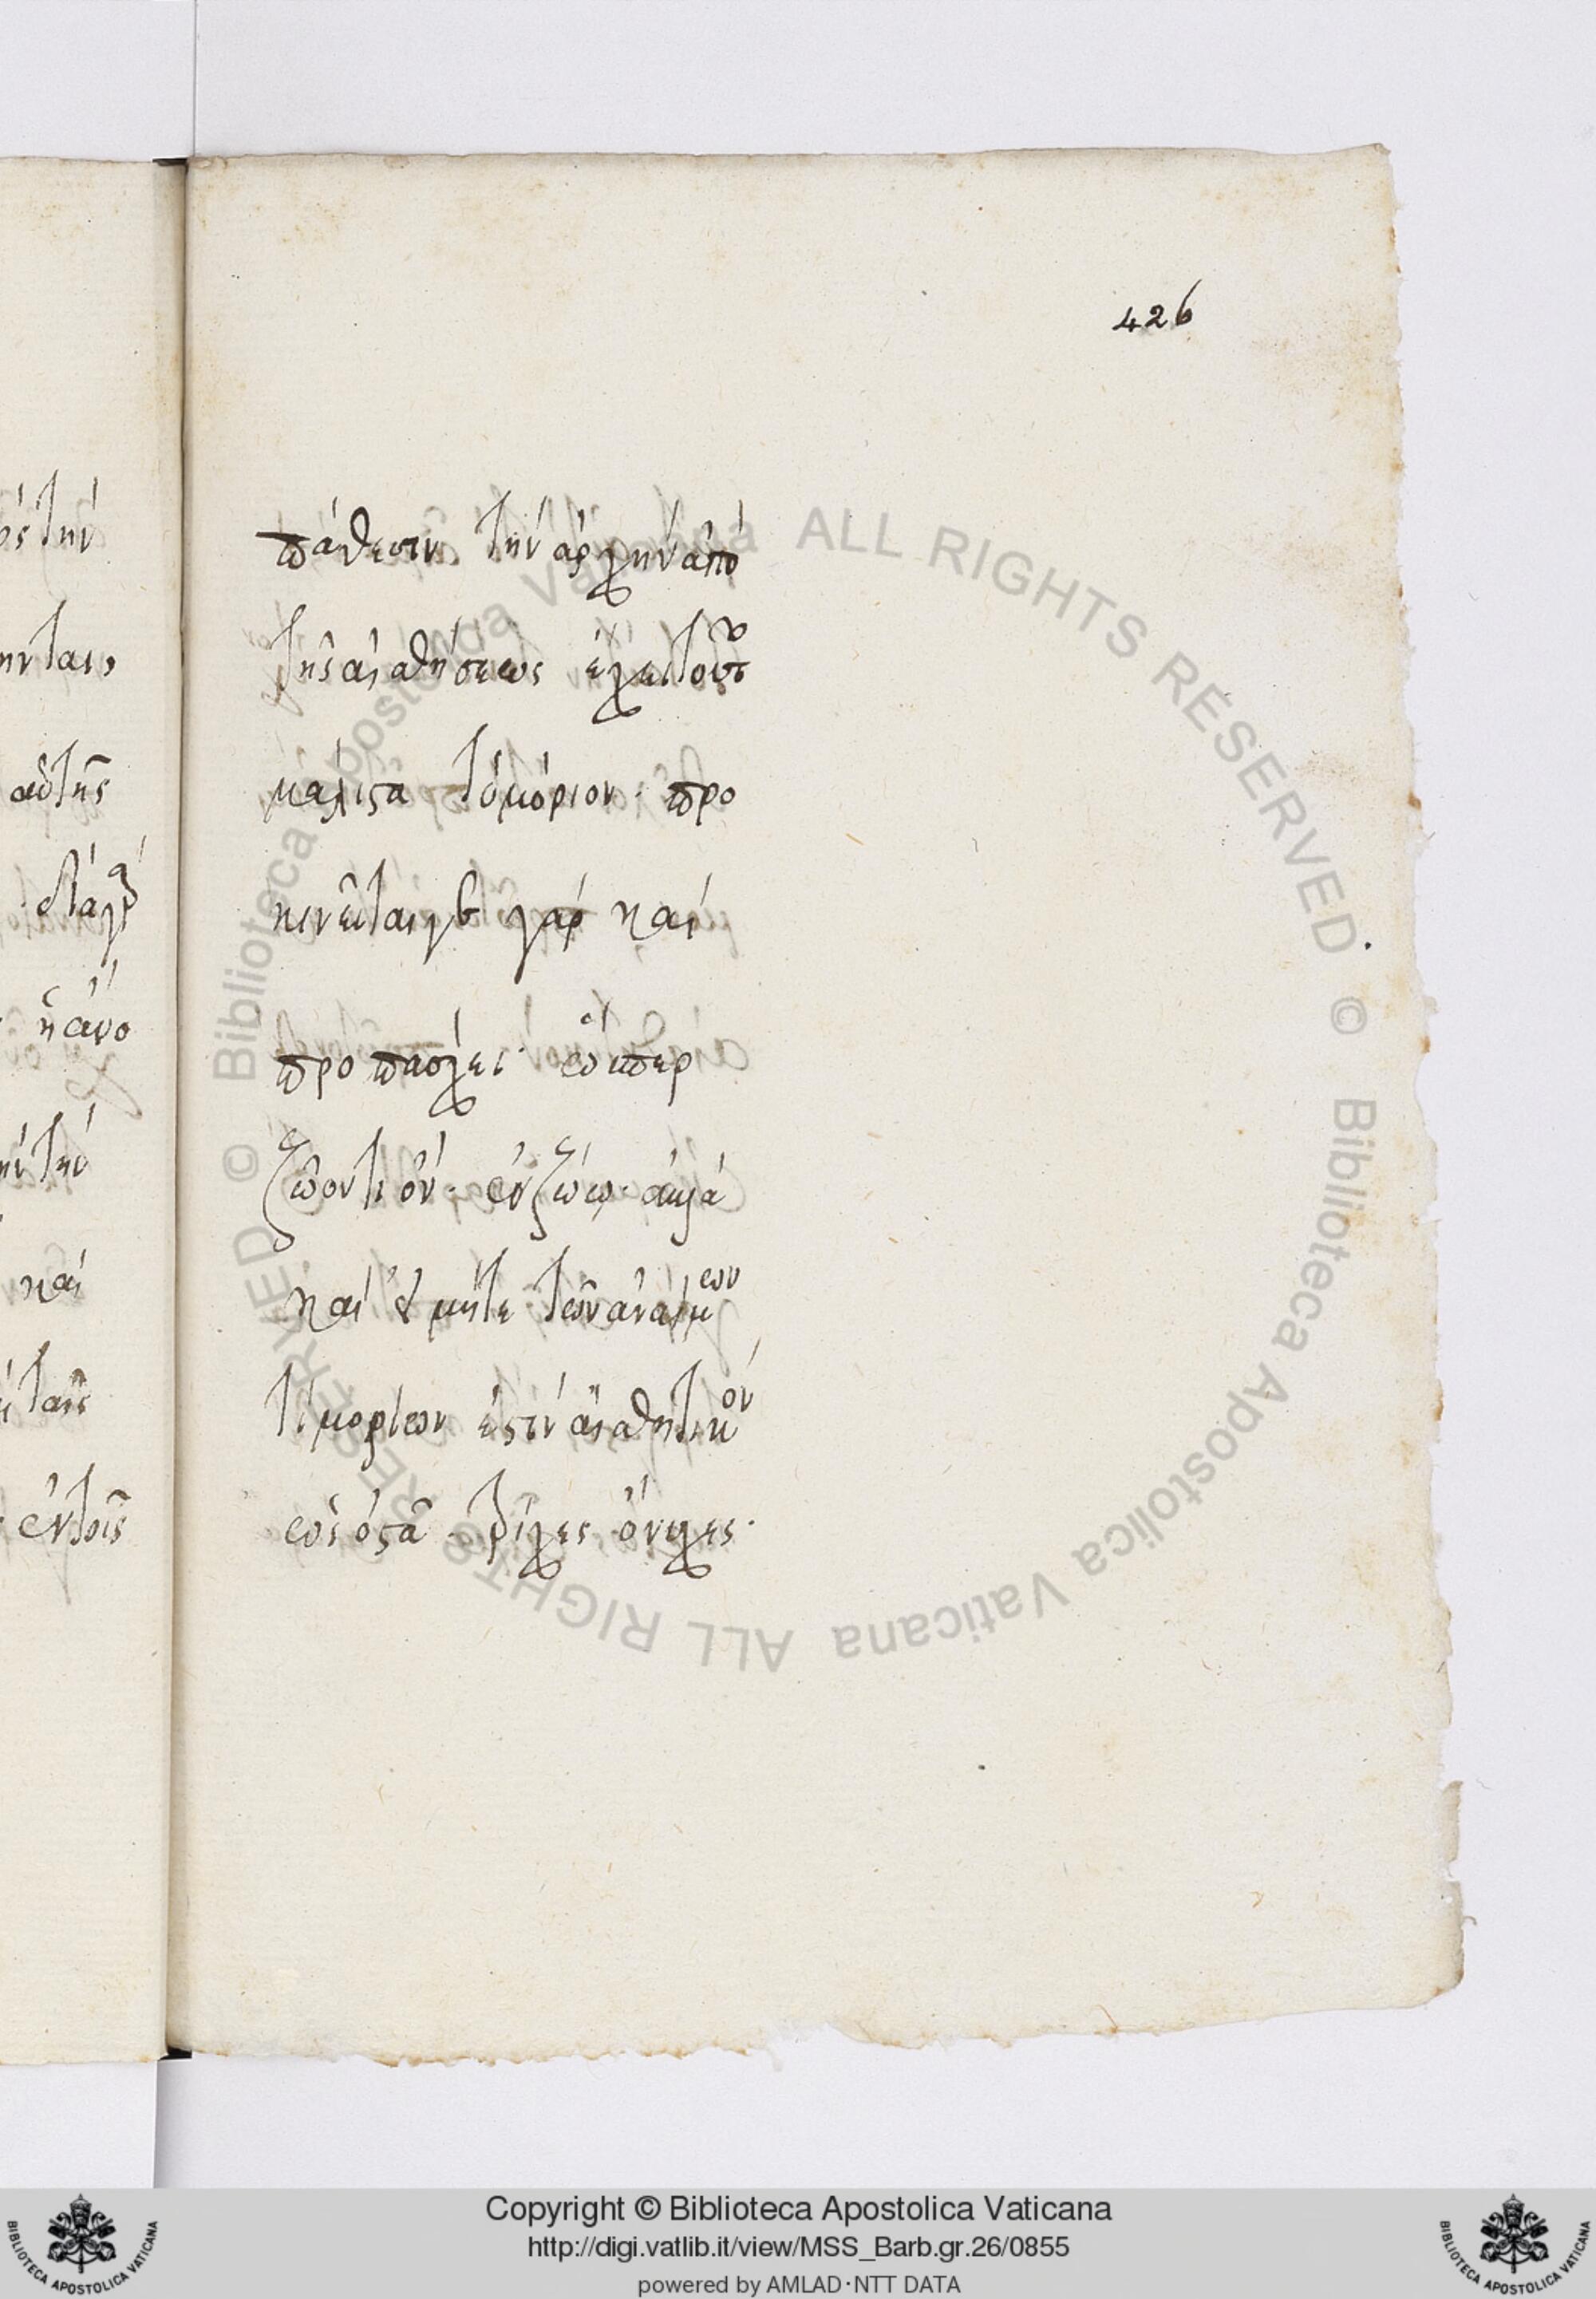 426
ρς τὴν
ηνται,
αὐτῆς
ἡ ἀνο
ὴν τὴν
καὶ
ταῖς
ἐν τοῖς
πάθεσιν τὴν ἀρχὴν ἀπὸ
τῆς αἰσθήσεως ἔχει τοῦτο
μάλιστα τὸ μόριον· προ
κινεῖται γὰρ καὶ
προπάσχει· εὖ
ζῶον τι ὂν· ἐν ζώω· ἀλλὰ
καὶ μήτε τῶν ἀναίμων
τι μορίων ἐστὶν αἰσθητικὸν
ὡς ὀστᾶ· τρίχες· ὄνυχες·
© Biblioteca Apostolica Vaticana ALL RIGHTS RESERVED © Biblioteca Apostolica Vaticana ALL RIGHTS RESERVED
Copyright © Biblioteca Apostolica Vaticana
http://digi.vatlib.it/view/MSS_Barb.gr.26/0855
powered by AMLAD·NTT DATA
BIBLIOTECA APOSTOLICA VATICANA
BIBLIOTECA APOSTOLICA VATICANA